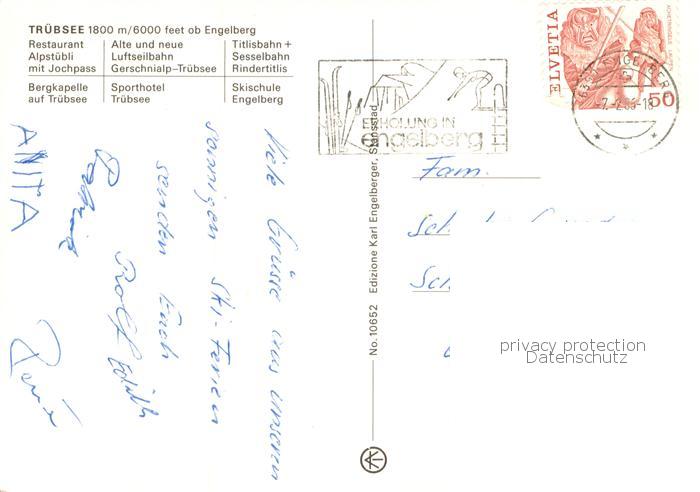 TRÜBSEE 1800 m/6000 feet ob Engelberg
Restaurant
Alpstübli
mit Jochpass
Alte und neue
Luftseilbahn
Gerschnialp–Trübsee
Titlisbahn +
Sesselbahn
Rindertitlis
Bergkapelle
auf Trübsee
Sporthotel
Trübsee
Skischule
Engelberg
Viele Grüsse aus unseren
sonnigen Ski-Ferien
senden Euch
Rolf Edith
ANITA
René
No. 10652 Edizione Karl Engelberger, Stansstad
ERHOLUNG IN
engelberg
HELVETIA
50
ENGELBERG
Fam.
Sch
Sch
privacy protection
Datenschutz